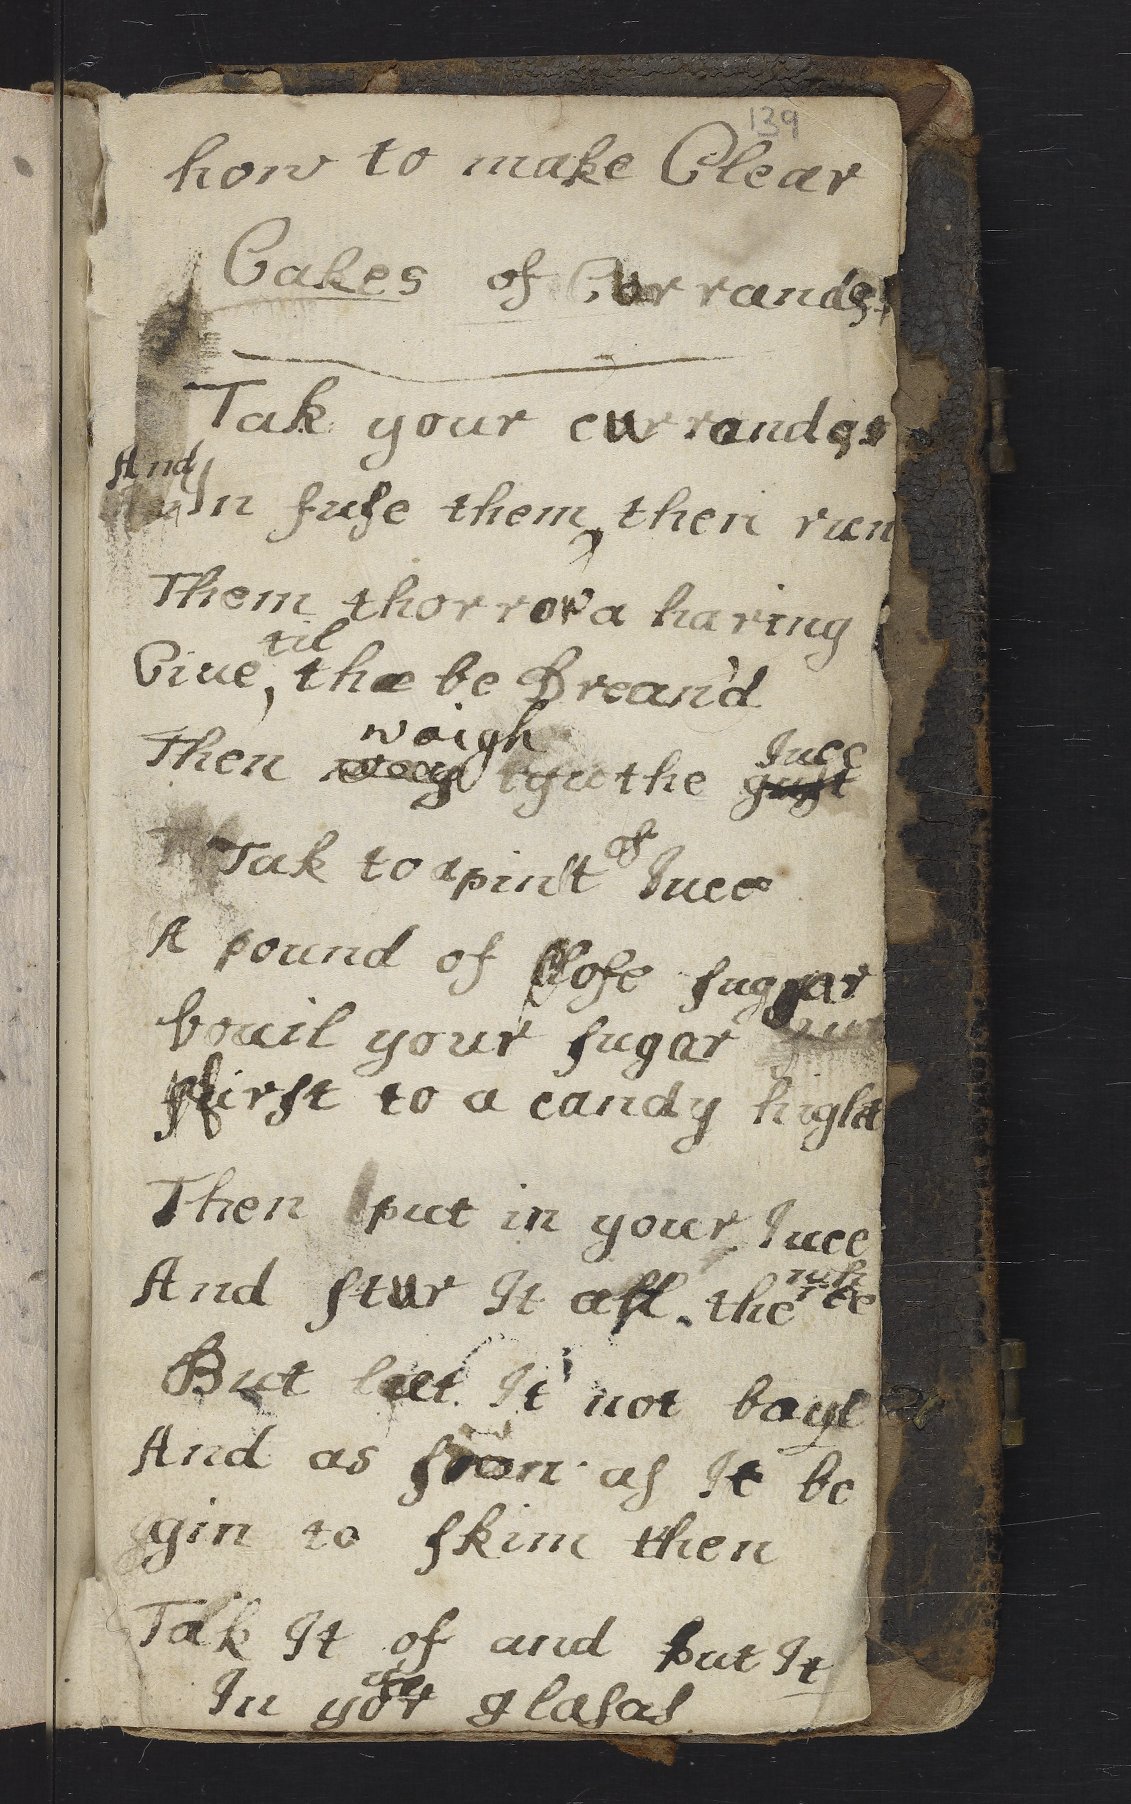 139
how to make Clear
Cakes of Currandes
Tak your currandes
And
In fuſe them, then run
Them thorrow a haring
til
Ciue, the be Dreand
waigh Juce
Then the guſt
of
Tak to a pint Juce
A pound of loſe ſuggar
bouil your ſugar
firſt to a candy hight
Then put in your Juce
And ſtur It all the
But let It not boyl
And as ſoon aſ It be
gin to ſkim then
Tak It of and put It
In your glaſas